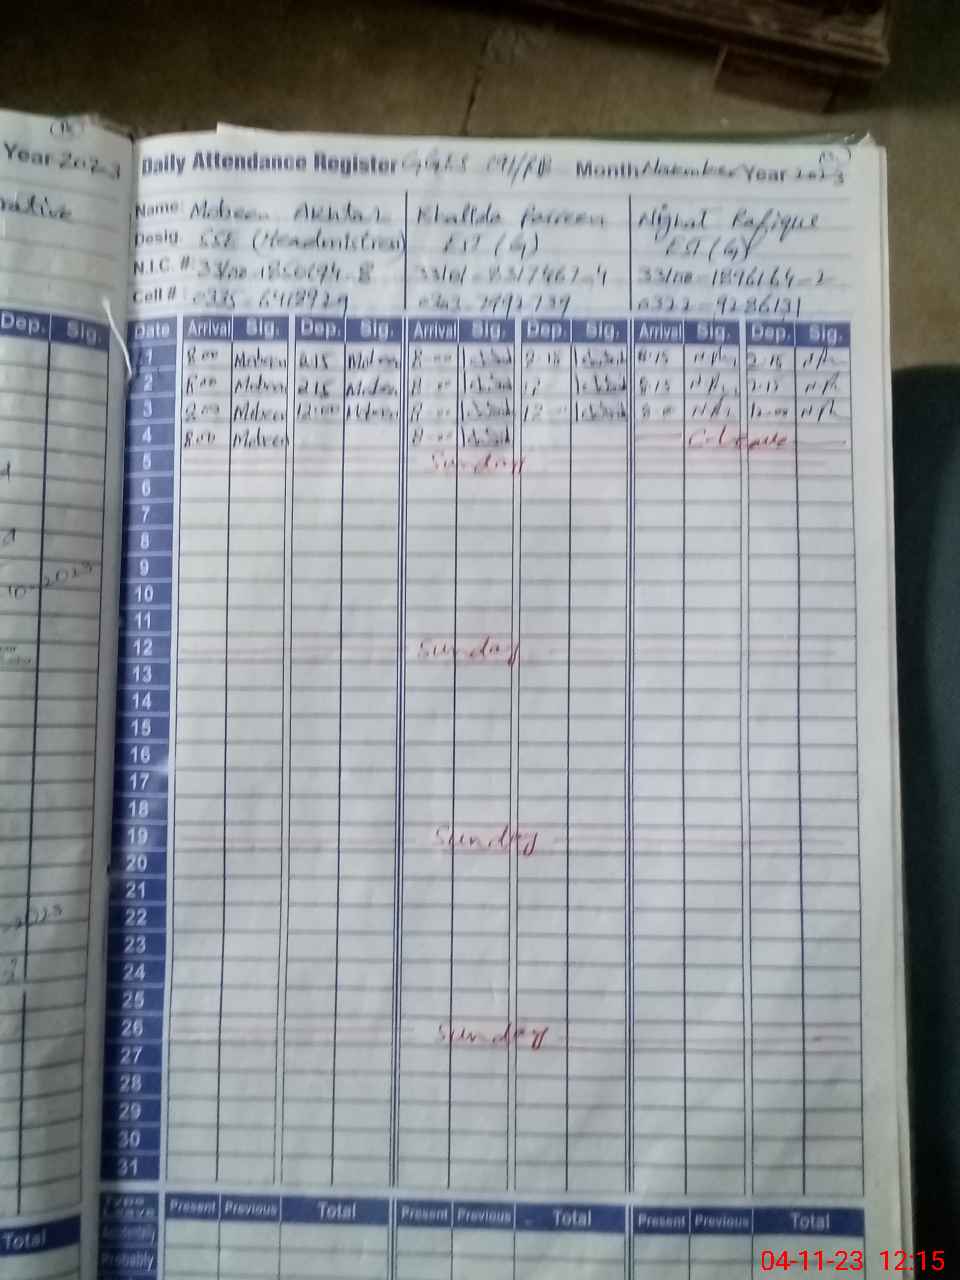 Year 2023
Daily Attendance Register GGHS Month November Year 2023
Name: Mobeen Akhtar Khalida Parveen Nighat Rafique
Desig. SSE (Headmistress) EST (G) EST (G)
N.I.C. #: 33100-1850194-8 33101-8317467-4 33100-1896164-2
Cell #: 0335-6418929 0343-7992739 0322-9286131
Dep. Sig. Date Arrival Sig. Dep. Sig. Arrival Sig. Dep. Sig. Arrival Sig. Dep. Sig.
1 8:00 Mobeen 2:15 Mobeen 8:00 2:15 8:15 2:15
2 8:00 Mobeen 2:15 Mobeen 8:00 8:15 2:15
3 8:00 Mobeen 12:00 Mobeen 8:00 12:00 8:00 12:00
4 8:00 Mobeen 8:00 C-Leave
5 Sunday
6
7
8
9
10
11
12 Sunday
13
14
15
16
17
18
19 Sunday
20
21
22
23
24
25
26 Sunday
27
28
29
30
31
Type Leave Present Previous Total Present Previous Total Present Previous Total
Accidentally
Total Probably
04-11-23 12:15